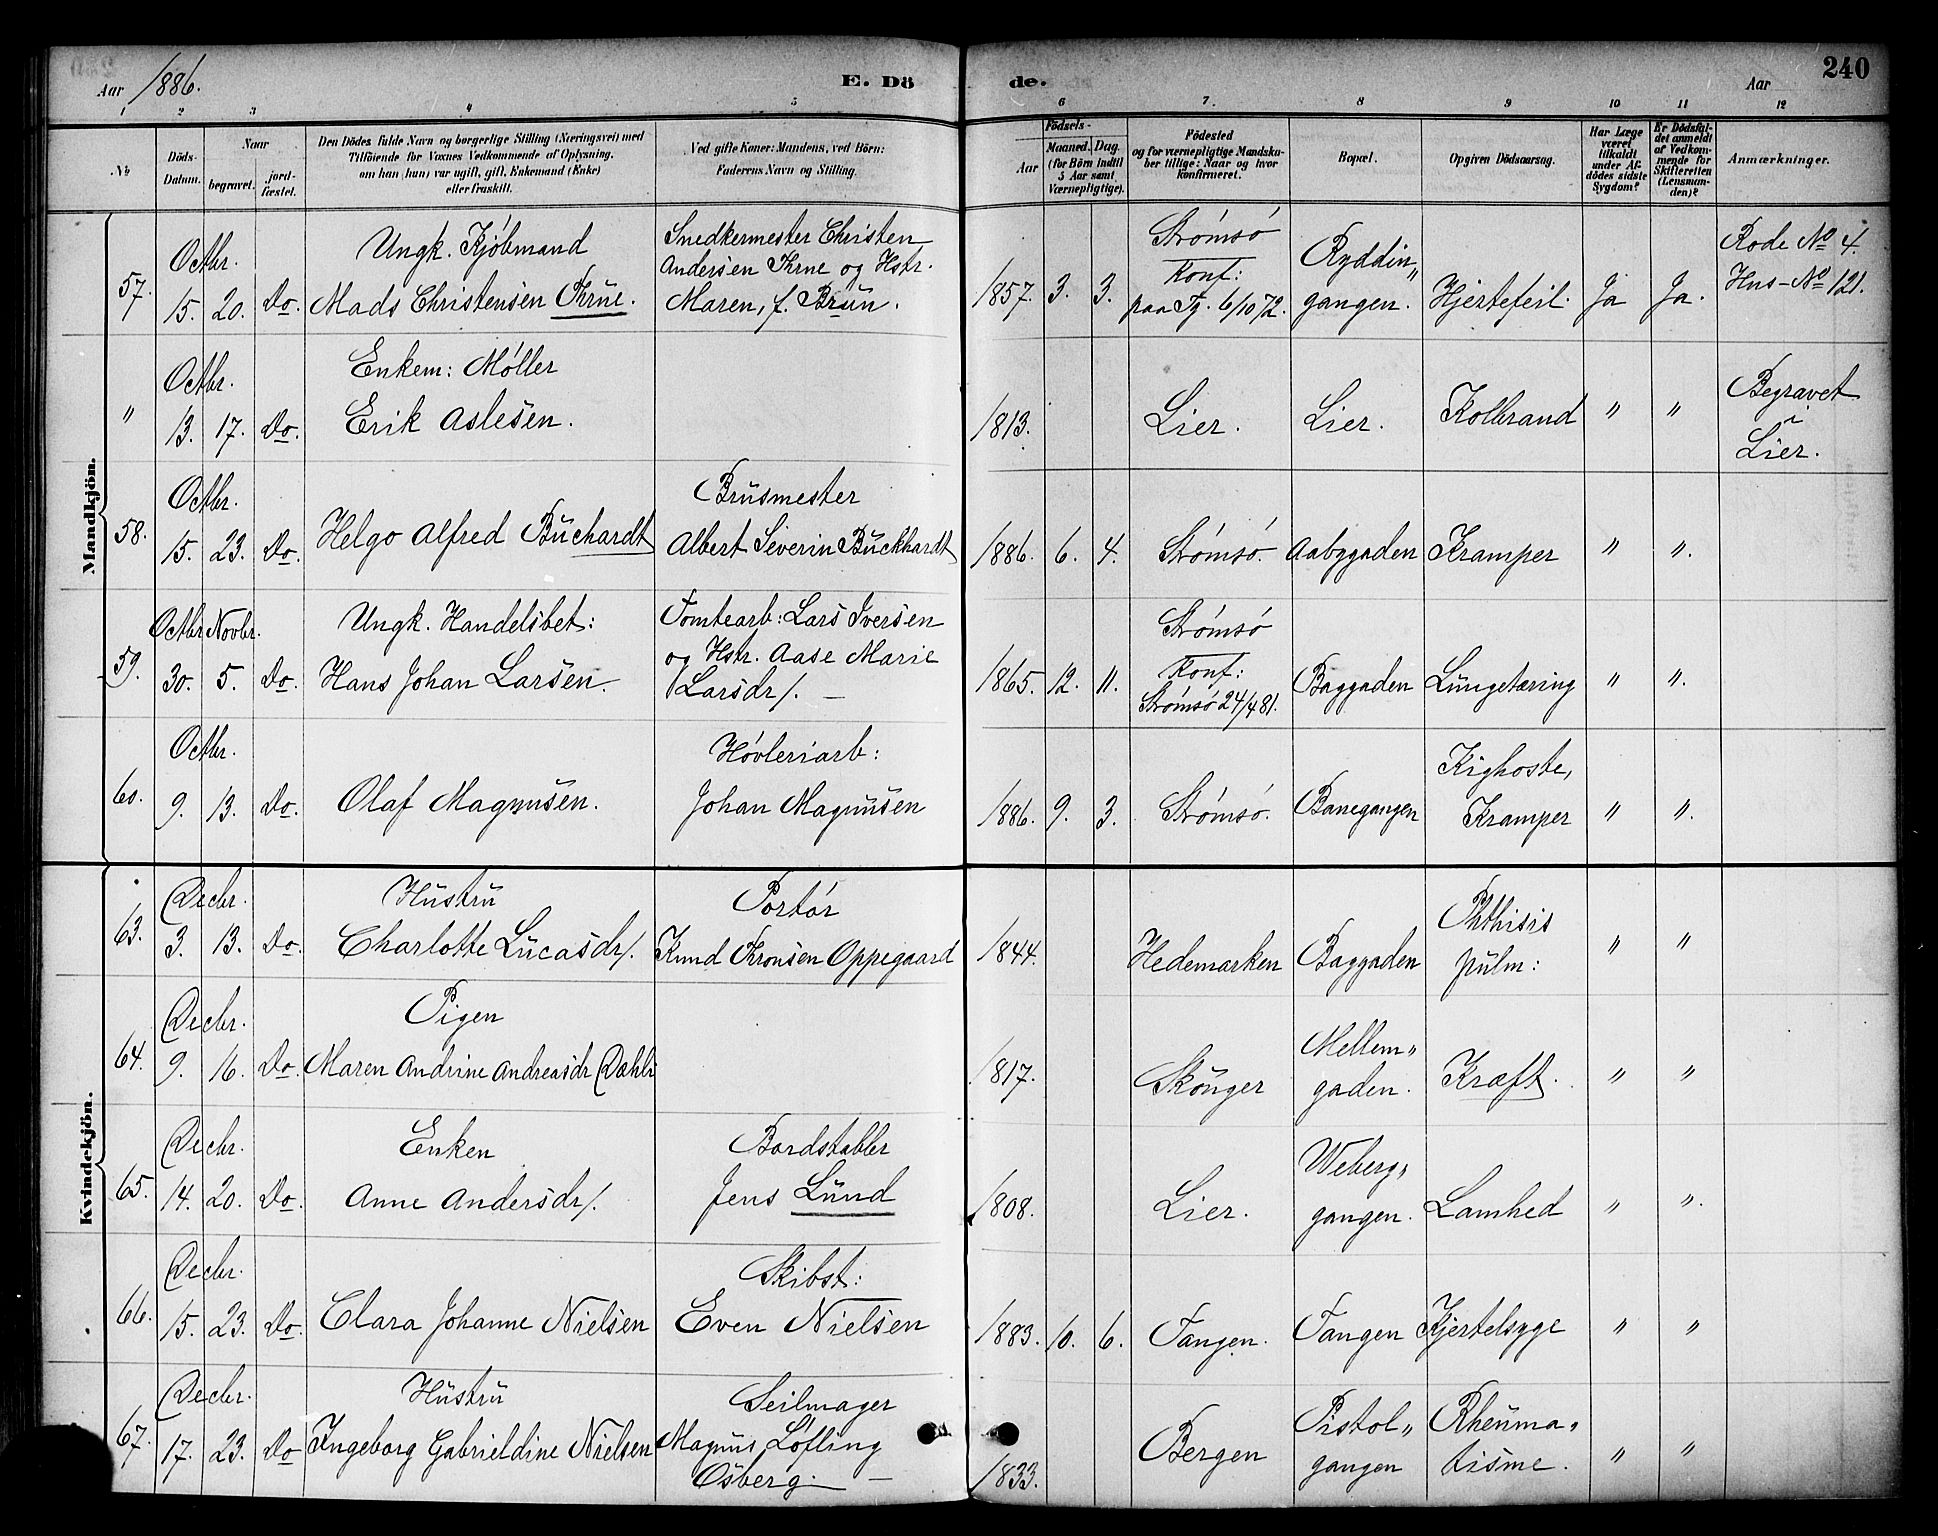 Aar 1886.
E. Dö
de.
Aar
240
1 2 3 4 5 6 7. 8 9 10 11 12
№
Döds-
Datum.
Naar
begravet.
jord-
fæstet.
Den Dödes fulde Navn og borgerlige Stilling (Næringsvei) med
Tilföiende for Voxnes Vedkommende af Oplysning,
om han (hun) var ugift, gift, Enkemand (Enke)
eller fraskilt.
Ved gifte Koner: Mandens, ved Börn:
Faderens Navn og Stilling.
Födsels-
Aar
Maaned. Dag.
(for Börn indtil
5 Aar samt
Værnepligtige).
Födested
og for værnepligtige Mandska-
ber tillige: Naar og hvor
konfirmeret.
Bopæl.
Opgiven Dödsaarsag.
Har Læge
været
tilkaldt
under Af-
dödes sidste
Sygdom?
Er Dödsfal-
det anmeldt
af Vedkom-
mende for
Skifteretten
(Lensman-
den)?
Anmærkninger.
Mandkjön.
57. Octbr. 15. 20. Do.
Ungk. Kjøbmand
Mads Christensen Thrue.
Snedkermester Christen
Andersen Thrne og Hstr.
Maren, f. Brun.
1857. 3. 3.
Strømsø
Konf:
paa Tg. 6/10 72.
Ryddin„
gangen.
Hjertefeil. Ja Ja.
Rode No 4.
Hus-No 121.
" Octbr. 13. 17. Do.
Enkem: Møller
Erik Aslesen.
1813. Lier. Lier. Kolbrand " "
Begravet
i
Lier.
58. Octbr. 15. 23. Do.
Helgo Alfred Buchardt
Brusmester
Albert Severin Buckhardt
1886. 6. 4. Strømsø. Aabygaden Kramper " ".
59. Octbr. Novbr. 30. 5. Do.
Ungk. Handelsbet:
Hans Johan Larsen.
Tomtearb: Lars Iversen
og Hstr. Aase Marie
Larsdr/. —
1865. 12. 11.
Strømsø
Konf:
Strømsø 24/4 81.
Baggaden Lungetæring " ".
60. Octbr. 9. 13. Do.
Olaf Magnusen.
Høvleriarb:
Johan Magnusen
1886. 9. 3. Strømsø. Banegangen
Kighoste,
Kramper " ".
Kvindekjön.
63. Decbr. 3. 13. Do.
Hustru
Charlotte Lucasdr/.
Portør
Knud Thronsen Oppegaard
1844. Hedemarken Baggaden
Phthisis
pulm: " "
64. Decbr. 9. 16. Do.
Pigen
Maren Andrine Andreasdr Dæhli
1817. Skouger
Mellem„
gaden.
Kræft. " "
65. Decbr. 14. 20. Do.
Enken
Anne Andersdr/.
Bordstabler
Jens Lund
1808. Lier.
Weberg„
gangen.
Lamhed " ".
66. Decbr. 15. 23. Do.
Clara Johanne Nielsen
Skibst:
Even Nielsen
1883. 10. 6. Tangen. Tangen Kjertelsyge " "
67. Decbr. 17. 23. Do
Hustru
Ingeborg Gabrieldine Nielsen
Seilmager
Magnus Løfling
Osberg. —
1833. Bergen
Pistol„
gangen
Rheuma„
tisme. " "